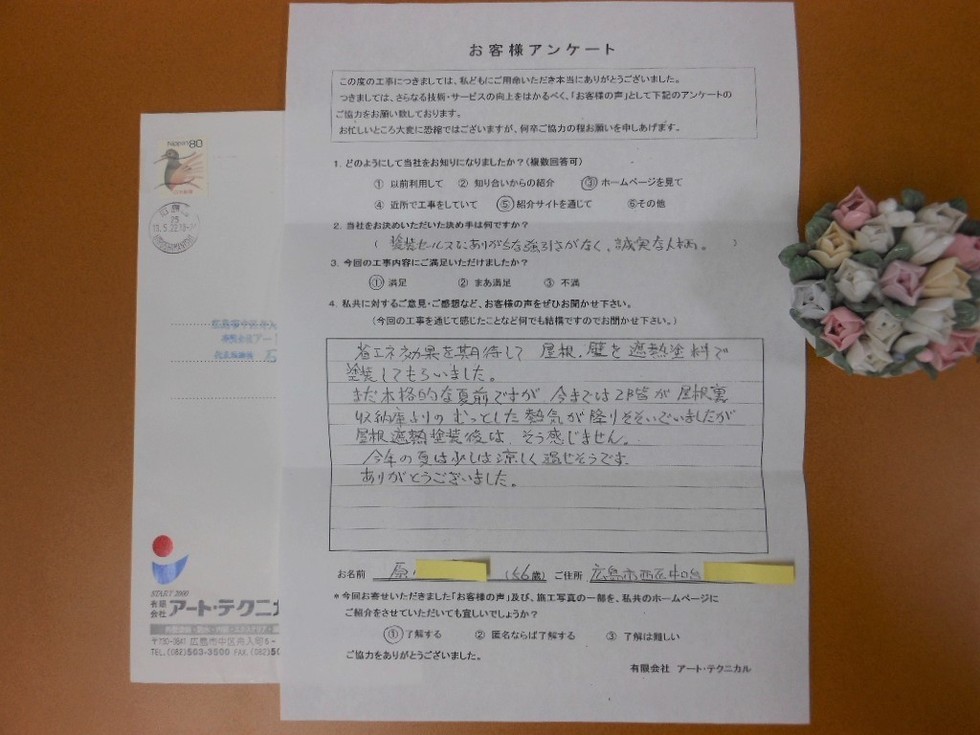 お客様アンケート
この度の工事につきましては、私どもにご用命いただき本当にありがとうございました。
つきましては、さらなる技術・サービスの向上をはかるべく、「お客様の声」として下記のアンケートの
ご協力をお願い致しております。
お忙しいところ大変に恐縮ではございますが、何卒ご協力の程お願いを申しあげます。
1. どのようにして当社をお知りになりましたか？(複数回答可)
① 以前利用して ② 知り合いからの紹介 ③ ホームページを見て
④ 近所で工事をしていて ⑤ 紹介サイトを通じて ⑥その他
2. 当社をお決めいただいた決め手は何ですか？
( 塗装セールスにありがちな強引さがなく、誠実な人柄。 )
3. 今回の工事内容にご満足いただけましたか？
① 満足 ② まあ満足 ③ 不満
4. 私共に対するご意見・ご感想など、お客様の声をぜひお聞かせ下さい。
(今回の工事を通じて感じたことなど何でも結構ですのでお聞かせ下さい。)
省エネ効果を期待して 屋根、壁を遮熱塗料で
塗装してもらいました。
まだ本格的な夏前ですが 今までは2階が屋根裏
収納庫よりの むっとした熱気が降りそそいでいましたが
屋根遮熱塗装後は、そう感じません。
今年の夏は少しは涼しく過せそうです。
ありがとうございました。
お名前 原 (56歳) ご住所 広島市西区
＊今回お寄せいただきました「お客様の声」及び、施工写真の一部を、私共のホームページに
ご紹介をさせていただいても宜しいでしょうか？
① 了解する ② 匿名ならば了解する ③ 了解は難しい
ご協力をありがとうございました。
有限会社 アート・テクニカル
NIPPON 80
START 2000
有限会社 アート・テクニカ
広島市中区舟入町6-